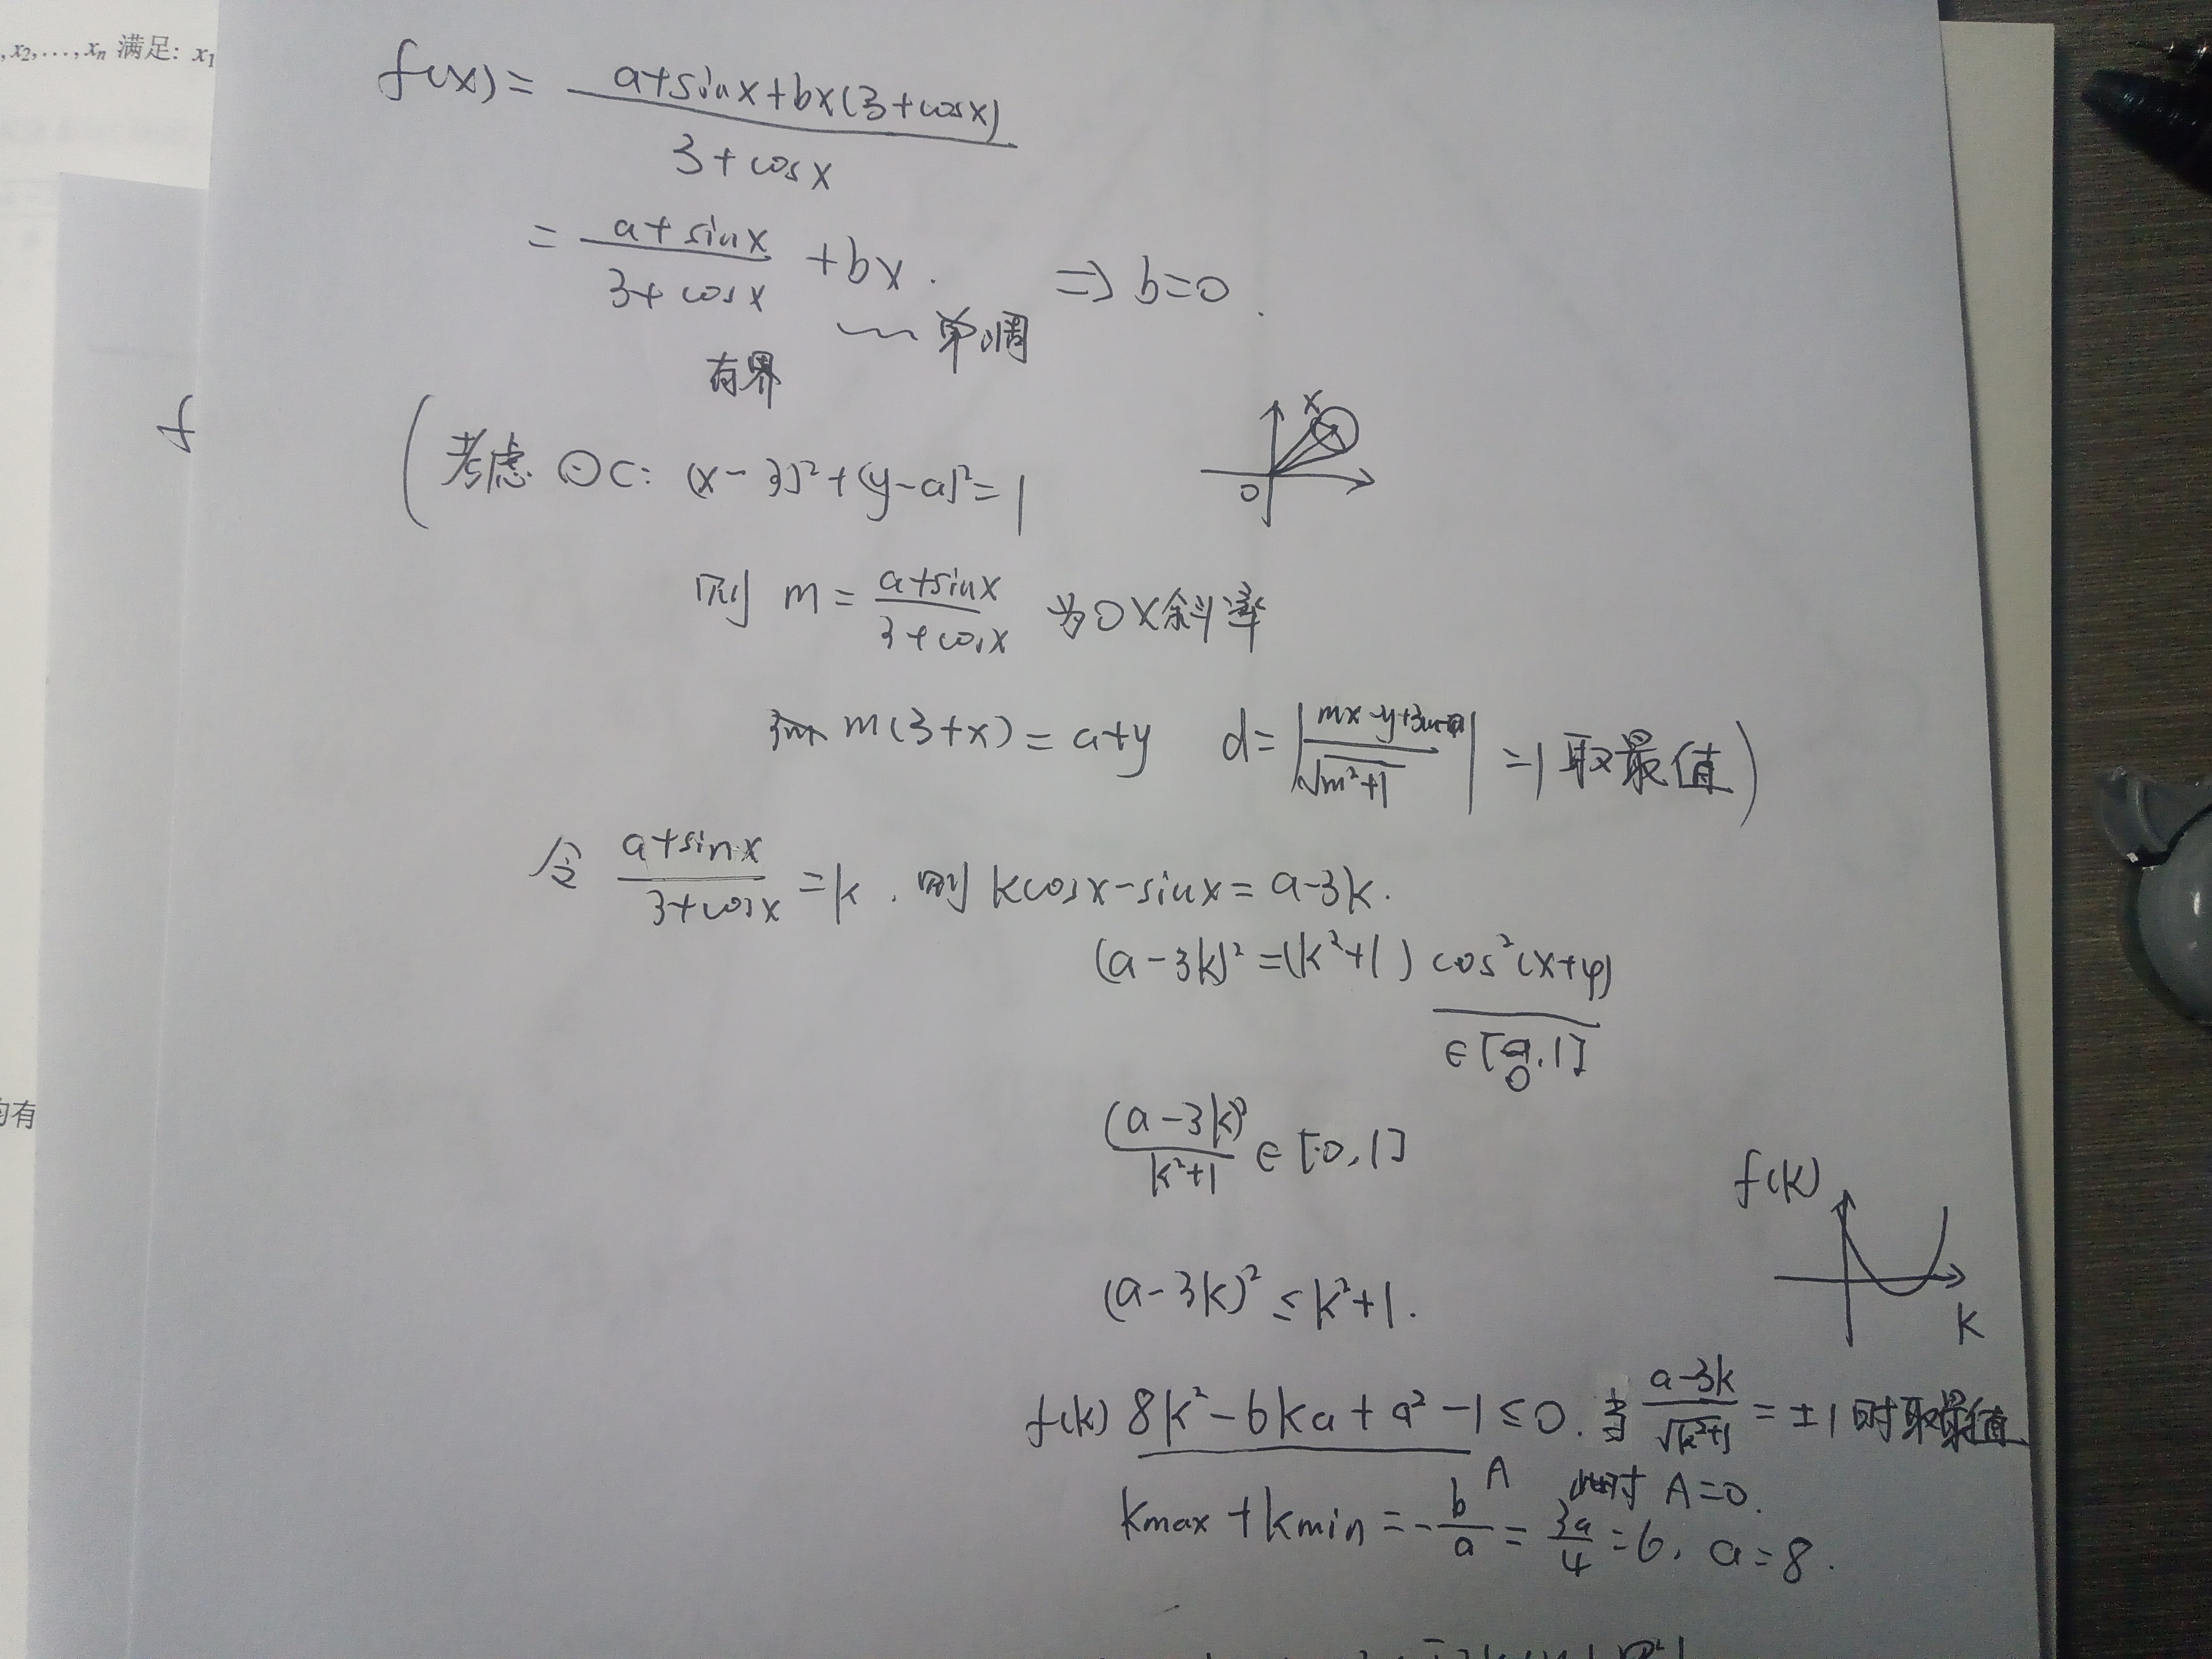 ,x₂,…,xₙ 满足: x₁
f(x) = (a+sinx+bx(3+cosx))/(3+cosx)
= (a+sinx)/(3+cosx) +bx. ⇒ b=0.
单调
有界
f
(考虑 ⊙C: (x-3)²+(y-a)²=1
x
O
则 m = (a+sinx)/(3+cosx) 为OX斜率
m(3+x) = a+y d= |(mx-y+3m-a)/√(m²+1)| =1 取最值)
令 (a+sinx)/(3+cosx) =k. 则 kcosx-sinx= a-3k.
(a-3k)² =(k²+1) cos²(x+φ)
∈[0,1]
均有
(a-3k)²/(k²+1) ∈ [0,1]
f(k)
(a-3k)² ≤ k²+1.
k
f(k) 8k²-6ka+a²-1≤0. 当 (a-3k)/√(k²+1) = ±1时取最值
A 此时 A=0.
kmax+kmin=-b/a = 3a/4 =6, a=8.